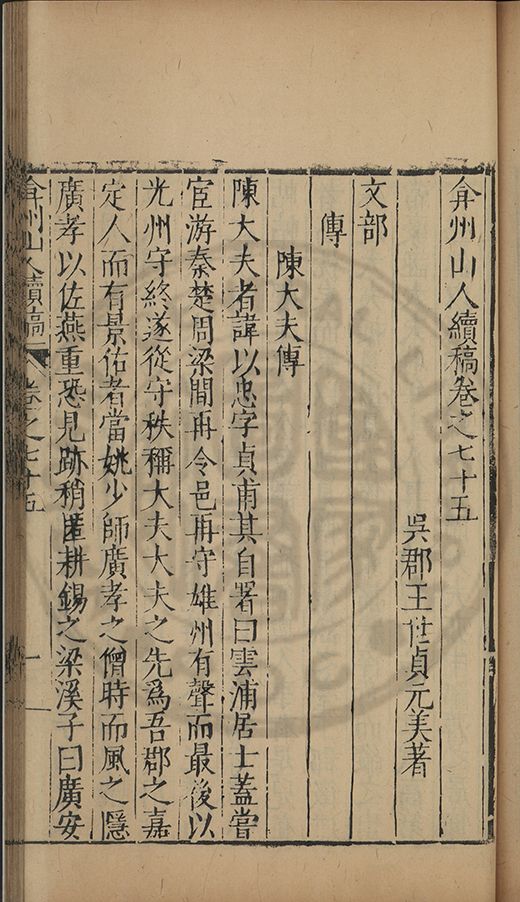 弇州山人續稿卷之七十五
吳郡王世貞元美著
文部
傳
陳大夫傳
陳大夫者諱以忠字貞甫其自署曰雲浦居士蓋嘗
宦游秦楚周梁間再令邑再守雄州有聲而最後以
光州守終遂從守秩稱大夫大夫之先爲吾郡之嘉
定人而有景佑者當姚少師廣孝之僧時而風之隱
廣孝以佐燕重恐見跡稍匿耕錫之梁溪子曰廣安
弇州山人續稿 卷之七十五 一